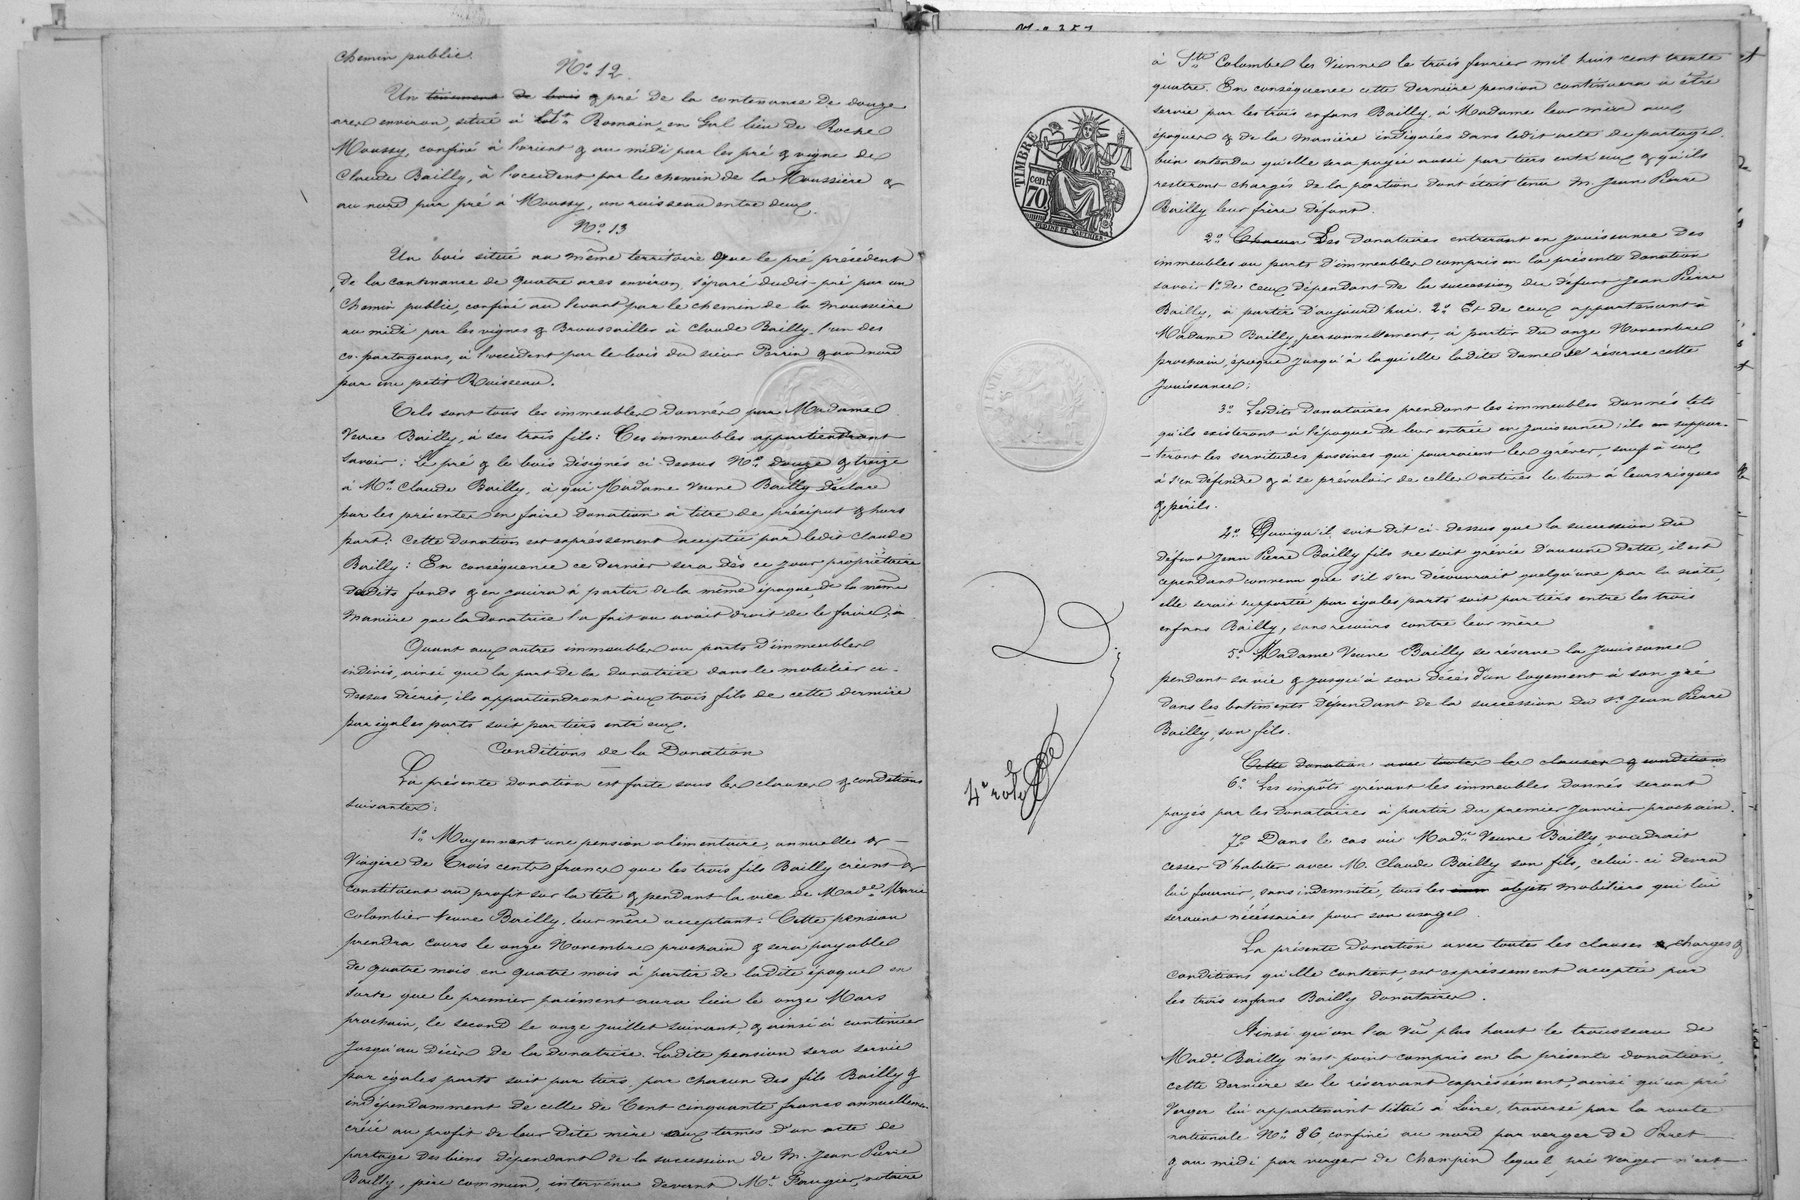 chemin public.
N° 12.
Un tènement de bois & pré de la contenance de douze
ares environ, situé à St Romain en Gal lieu de Roche
Moussy, confiné à l'orient & au midi par les pré & vigne de
Claude Bailly, à l'occident par le chemin de la Moussière &
au nord par pré à Moussy, un ruisseau entre deux.
N° 13
Un bois situé au même territoire que le pré précédent
de la contenance de quatre ares environ, séparé dudit pré par un
chemin public, confiné au levant par le chemin de la Moussière
au midi par les vignes & Broussailles à Claude Bailly, l'un des
co-partageans, à l'occident par le bois du sieur Perrin & au nord
par un petit Ruisseau.
Tels sont tous les immeubles donnés par Madame
Veuve Bailly, à ses trois fils: Ces immeubles appartiendront
savoir: Le pré & le bois désignés ci-dessus Nos douze & treize
à Mr Claude Bailly, à qui Madame Veuve Bailly déclare
par les présentes en faire donation à titre de préciput & hors
part: cette donation est expressément acceptée par ledit Claude
Bailly: En conséquence ce dernier sera dès ce jour propriétaire
desdits fonds & en jouira à partir de la même époque, de la même
manière que la Donatrice l'a fait ou avait droit de le faire.
Quant aux autres immeubles ou parts d'immeubles
indivis, ainsi que la part de la donatrice dans le mobilier ci-
dessus décrit, ils appartiendront aux trois fils de cette dernière
par égales parts soit par tiers entr'eux.
Conditions de la Donation
La présente donation est faite sous les clauses & conditions
suivantes:
1° Moyennant une pension alimentaire, annuelle &
Viagère de Trois cents francs que les trois fils Bailly créent &
constituent au profit sur la tête & pendant la vie de Made Marie
Colombier Veuve Bailly, leur mère acceptant. Cette pension
prendra cours le onze Novembre prochain & sera payable
de quatre mois en quatre mois à partir de ladite époque en
sorte que le premier paiement aura lieu le onze Mars
prochain, le second le onze juillet suivant, & ainsi à continuer
jusqu'au décès de la donatrice. Ladite pension sera servie
par égales parts soit par tiers par chacun des fils Bailly &
indépendamment de celle de Cent cinquante francs annuellement
créée au profit de leur dite mère aux termes d'un acte de
partage des biens dépendant de la succession de M. Jean Pierre
Bailly, père commun, intervenu devant Me Fougier, notaire
TIMBRE
cen.
70
à Ste Colombe les Vienne le trois fevrier mil huit cent trente
quatre. En conséquence cette dernière pension continuera à être
servie par les trois enfans Bailly, à Madame leur mère aux
époques & de la manière indiquées dans ledit acte de partage.
bien entendu qu'elle sera payée aussi par tiers entr'eux & qu'ils
resteront chargés de la portion dont était tenu M. Jean Pierre
Bailly leur frère défunt.
2° Chacun Les donataires entreront en jouissance des
immeubles ou parts d'immeubles compris en la présente donation
savoir 1° de ceux dépendant de la succession du défunt Jean Pierre
Bailly, à partir d'aujourd'hui. 2° Et de ceux appartenant à
Madame Bailly, personnellement, à partir du onze Novembre
prochain, époque jusqu'à laquelle ladite dame se réserve cette
jouissance;
3° Lesdits donataires prendront les immeubles donnés tels
qu'ils existeront à l'époque de leur entrée en jouissance; ils en suppor-
-teront les servitudes passives qui pourraient les gréver, sauf à eux
à s'en défendre & à se prévaloir de celles actives le tout à leurs risques
& périls.
4° Quoiqu'il soit dit ci-dessus que la succession du
défunt Jean Pierre Bailly fils ne soit grévée d'aucune dette, il est
cependant convenu que s'il s'en découvrait quelqu'une par la suite,
elle serait supportée par égales parts soit par tiers entre les trois
enfans Bailly, sans recours contre leur mère
5° Madame Veuve Bailly se réserve la jouissance
pendant sa vie & jusqu'à son décès d'un logement à son gré
dans les batiments dépendant de la succession du Sr Jean Pierre
Bailly, son fils.
Cette donation avec toutes les clauses & conditions
6° Les impôts grévant les immeubles donnés seront
payés par les donataires à partir du premier Janvier prochain.
7° Dans le cas où Made Veuve Bailly, voudrait
cesser d'habiter avec M. Claude Bailly son fils, celui-ci devra
lui fournir, sans indemnité, tous les objets mobiliers qui lui
seront nécessaires pour son usage.
La présente donation avec toutes les clauses charges &
conditions qu'elle contient, est expressément acceptée par
les trois enfans Bailly donataires.
Ainsi qu'on l'a vu plus haut le trousseau de
Made Bailly n'est point compris en la présente donation,
cette dernière se le réservant expressément ainsi qu'un pré
Verger lui appartenant situé à Loire, traversé par la route
nationale N° 86, confiné au nord par verger de Paret
& au midi par verger de Champin lequel pré verger n'est
4e role